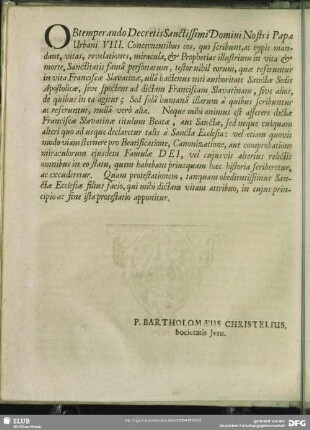 OBtemperando Decretis Sanctissimi Domini Nostri Papæ
Urbani VIII. Concernentibus eos, qui scribunt, ac typis man-
dant, vitas, revelationes, miracula, & Prophetias illustrium in vita &
morte, Sanctitatis famâ personarum, testor nihil eorum, quæ referuntur
in vita Franciscæ Slavatinæ, ullâ hactenus niti authoritate Sanctæ Sedis
Apostolicæ, sive spectent ad dictam Franciscam Slavatinam, sive alios,
de quibus in ea agitur; Sed solâ humanâ illorum à quibus scribuntur
ac referuntur, nullâ verò aliâ. Neque mihi animus est asserere dictæ
Franciscæ Slavatinæ titulum Beatæ, aut Sanctæ, sed neque cuiquam
alteri quo ad usque declaretur talis à Sancta Ecclesia: vel etiam quovis
modo viam sternere pro Beatificatione, Canonizatione, aut comprobatione
miraculorum ejusdem Famulæ DEI, vel cujusvis alterius relictis
omnibus in eo statu, quem habebant priusquam hæc historia scriberetur,
ac excuderetur. Quam protestationem, tanquam obedientissimus San-
ctæ Ecclesiæ filius facio, qui mihi dictam vitam attribuo, in cujus prin-
cipio ac fine ista protestatio apponitur.
P. BARTHOLOMÆUS CHRISTELIUS,
Societatis Jesu.
SLUB
DFG